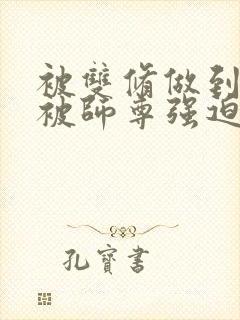 被雙脩做到
被師尊强迫
孔寶書